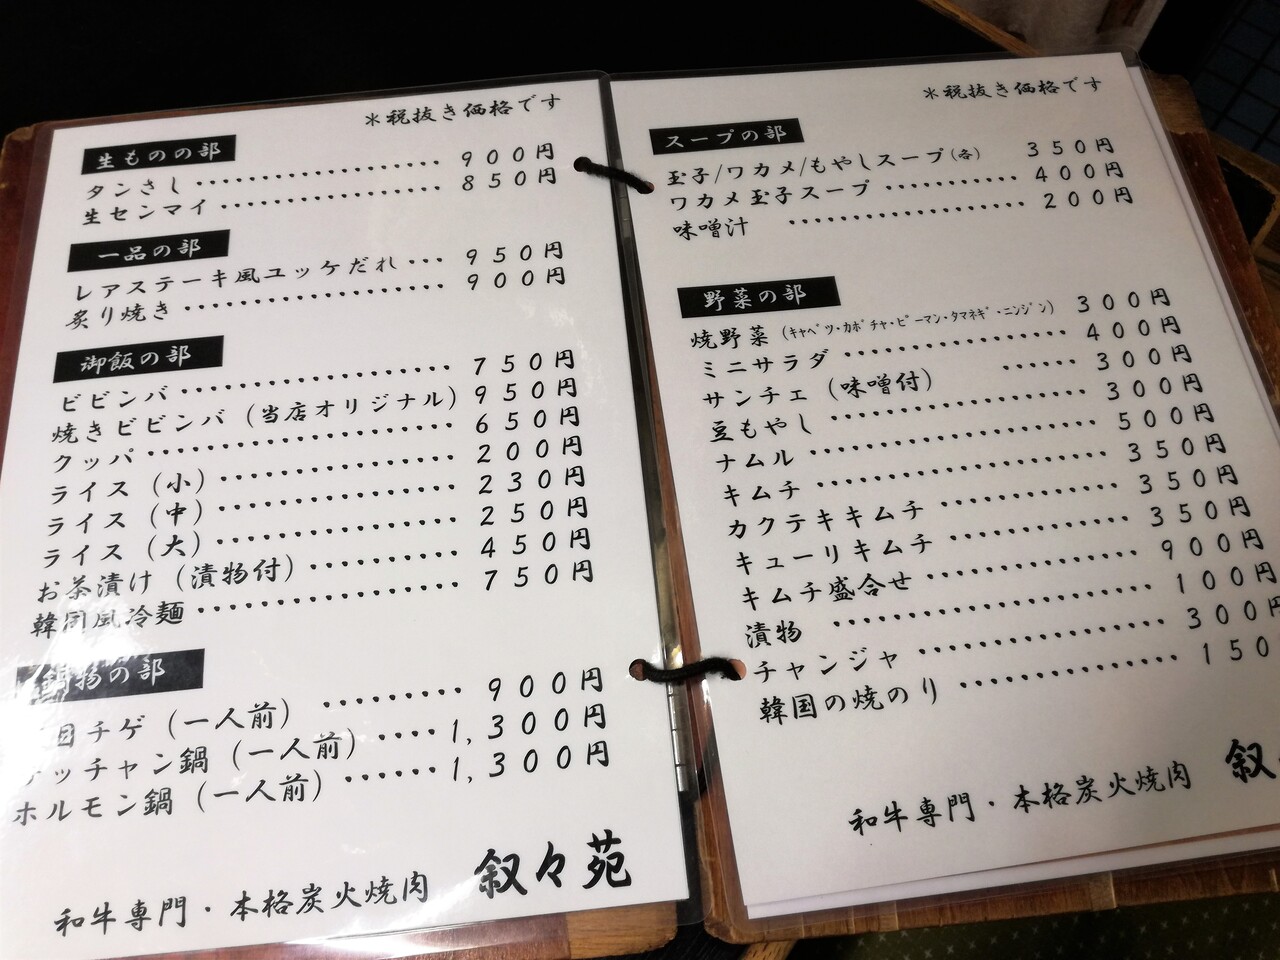 ＊税抜き価格です
生ものの部
タンさし 900円
生センマイ 850円
一品の部
レアステーキ風ユッケだれ 950円
炙り焼き 900円
御飯の部
ビビンバ 750円
焼きビビンバ（当店オリジナル） 950円
クッパ 650円
ライス（小） 200円
ライス（中） 230円
ライス（大） 250円
お茶漬け（漬物付） 450円
韓国風冷麺 750円
鍋物の部
チゲ（一人前） 900円
ッチャン鍋（一人前） 1,300円
ホルモン鍋（一人前） 1,300円
和牛専門・本格炭火焼肉 叙々苑
＊税抜き価格です
スープの部
玉子/ワカメ/もやしスープ（各） 350円
ワカメ玉子スープ 400円
味噌汁 200円
野菜の部
焼野菜（ｷｬﾍﾞﾂ・ｶﾎﾞﾁｬ・ﾋﾟｰﾏﾝ・ﾀﾏﾈｷﾞ・ﾆﾝｼﾞﾝ） 300円
ミニサラダ 400円
サンチェ（味噌付） 300円
豆もやし 300円
ナムル 500円
キムチ 350円
カクテキキムチ 350円
キューリキムチ 350円
キムチ盛合せ 900円
漬物 100円
チャンジャ 300円
韓国の焼のり 150
和牛専門・本格炭火焼肉 叙